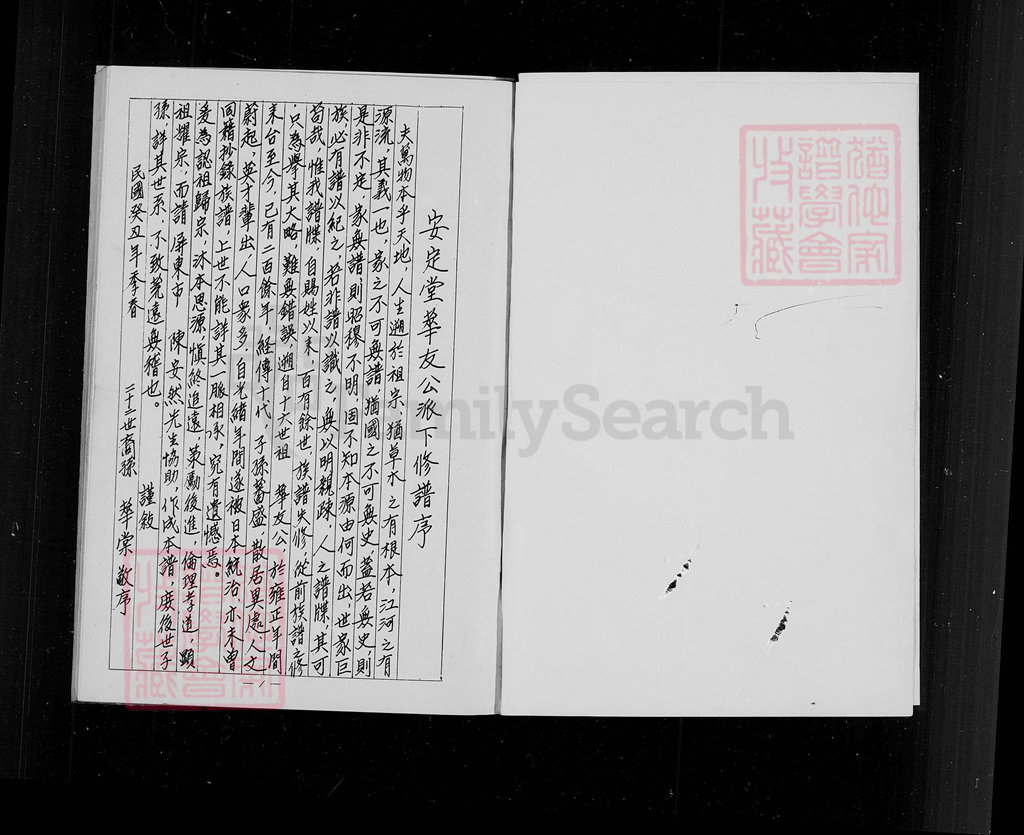 安定堂華友公派下修譜序
夫萬物本乎天地，人生遡於祖宗、猶草木之有根本，江河之有
源流，其義一也，家之不可無譜，猶國之不可無史，蓋若無史，則
是非不定，家無譜則昭穆不明，固不知本源由何而出，世家巨
族必有譜以紀之，若非譜以識之，無以明親疎，人之譜牒，其可
苟哉，惟我譜牒，自賜姓以來，百有餘世，族譜失修，從前族譜之修
，只為舉其大略，難無錯誤，遡自十六世祖　華友公，於雍正年間
來台至今，已有二百餘年，経傳十代，子孫蕃盛，散居異處，人文
蔚起，英才輩出，人口衆多，自光緒年間遂被日本統治，亦未曽
回籍抄錄族譜，上世不能詳其一脈相承，究有遺憾焉。
爰為認祖歸宗，沐本思源，慎終追遠，策勵後進，倫理孝道，顯
祖耀宗，而請　屏東市　陳安然先生協助，作成本譜，庶後世子
孫，詳其世系，不致荒遠無稽也。　謹敘
民國癸丑年季春　二十二世裔孫　華棠敬序
-1-
猶他家
譜學會
收藏
FamilySearch
猶他家
譜學會
收藏